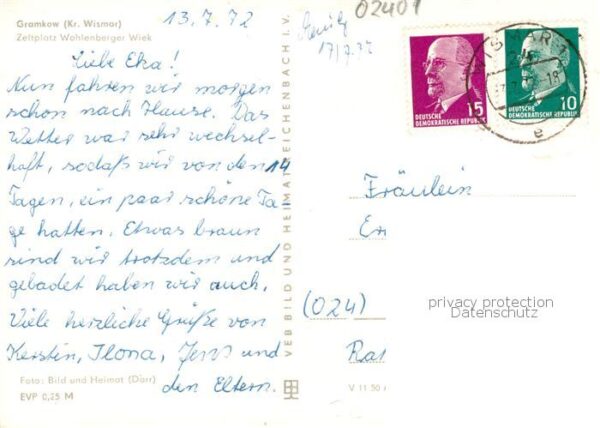 Gramkow (Kr. Wismar)
Zeltplatz Wohlenberger Wiek
13.7.72
02401
17/7.72
Liebe Eka!
Nun fahren wir morgen
schon nach Hause. Das
Wetter war sehr wechsel-
haft, sodaß wir von den 14
Tagen, ein paar schöne Ta
ge hatten. Etwas braun
sind wir trotzdem und
gebadet haben wir auch.
Viele herzliche Grüße von
Kerstin, Ilona, Jens und
den Eltern.
Foto: Bild und Heimat (Darr)
EVP 0,25 M
VEB BILD UND HEIMAT REICHENBACH I. V.
15
DEUTSCHE
DEMOKRATISCHE REPUBLIK
10
DEUTSCHE
DEMOKRATISCHE REPUBLIK
WISMAR 1
e
Fräulein
Er
(024)
privacy protection
Datenschutz
Ras
V 11 50